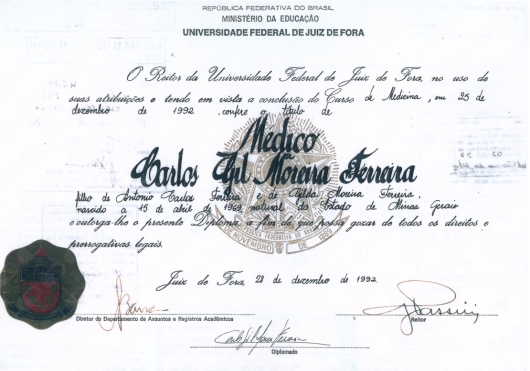 REPÚBLICA FEDERATIVA DO BRASIL
MINISTÉRIO DA EDUCAÇÃO
UNIVERSIDADE FEDERAL DE JUIZ DE FORA
O Reitor da Universidade Federal de Juiz de Fora, no uso de
suas atribuições e tendo em vista a conclusão do Curso de Medicina, em 25 de
dezembro de 1992, confere o título de
Médico
Carlos Gil Moreira Ferreira
filho de Antonio Carlos Ferreira e de Gilda Moreira Ferreira,
nascido a 15 de abril de 1969, natural do Estado de Minas Gerais
e outorga-lhe o presente Diploma a fim de que possa gozar de todos os direitos e
prerrogativas legais.
Juiz de Fora, 28 de dezembro de 1992.
Diretor do Departamento de Assuntos e Registros Acadêmicos
Reitor
Diplomado